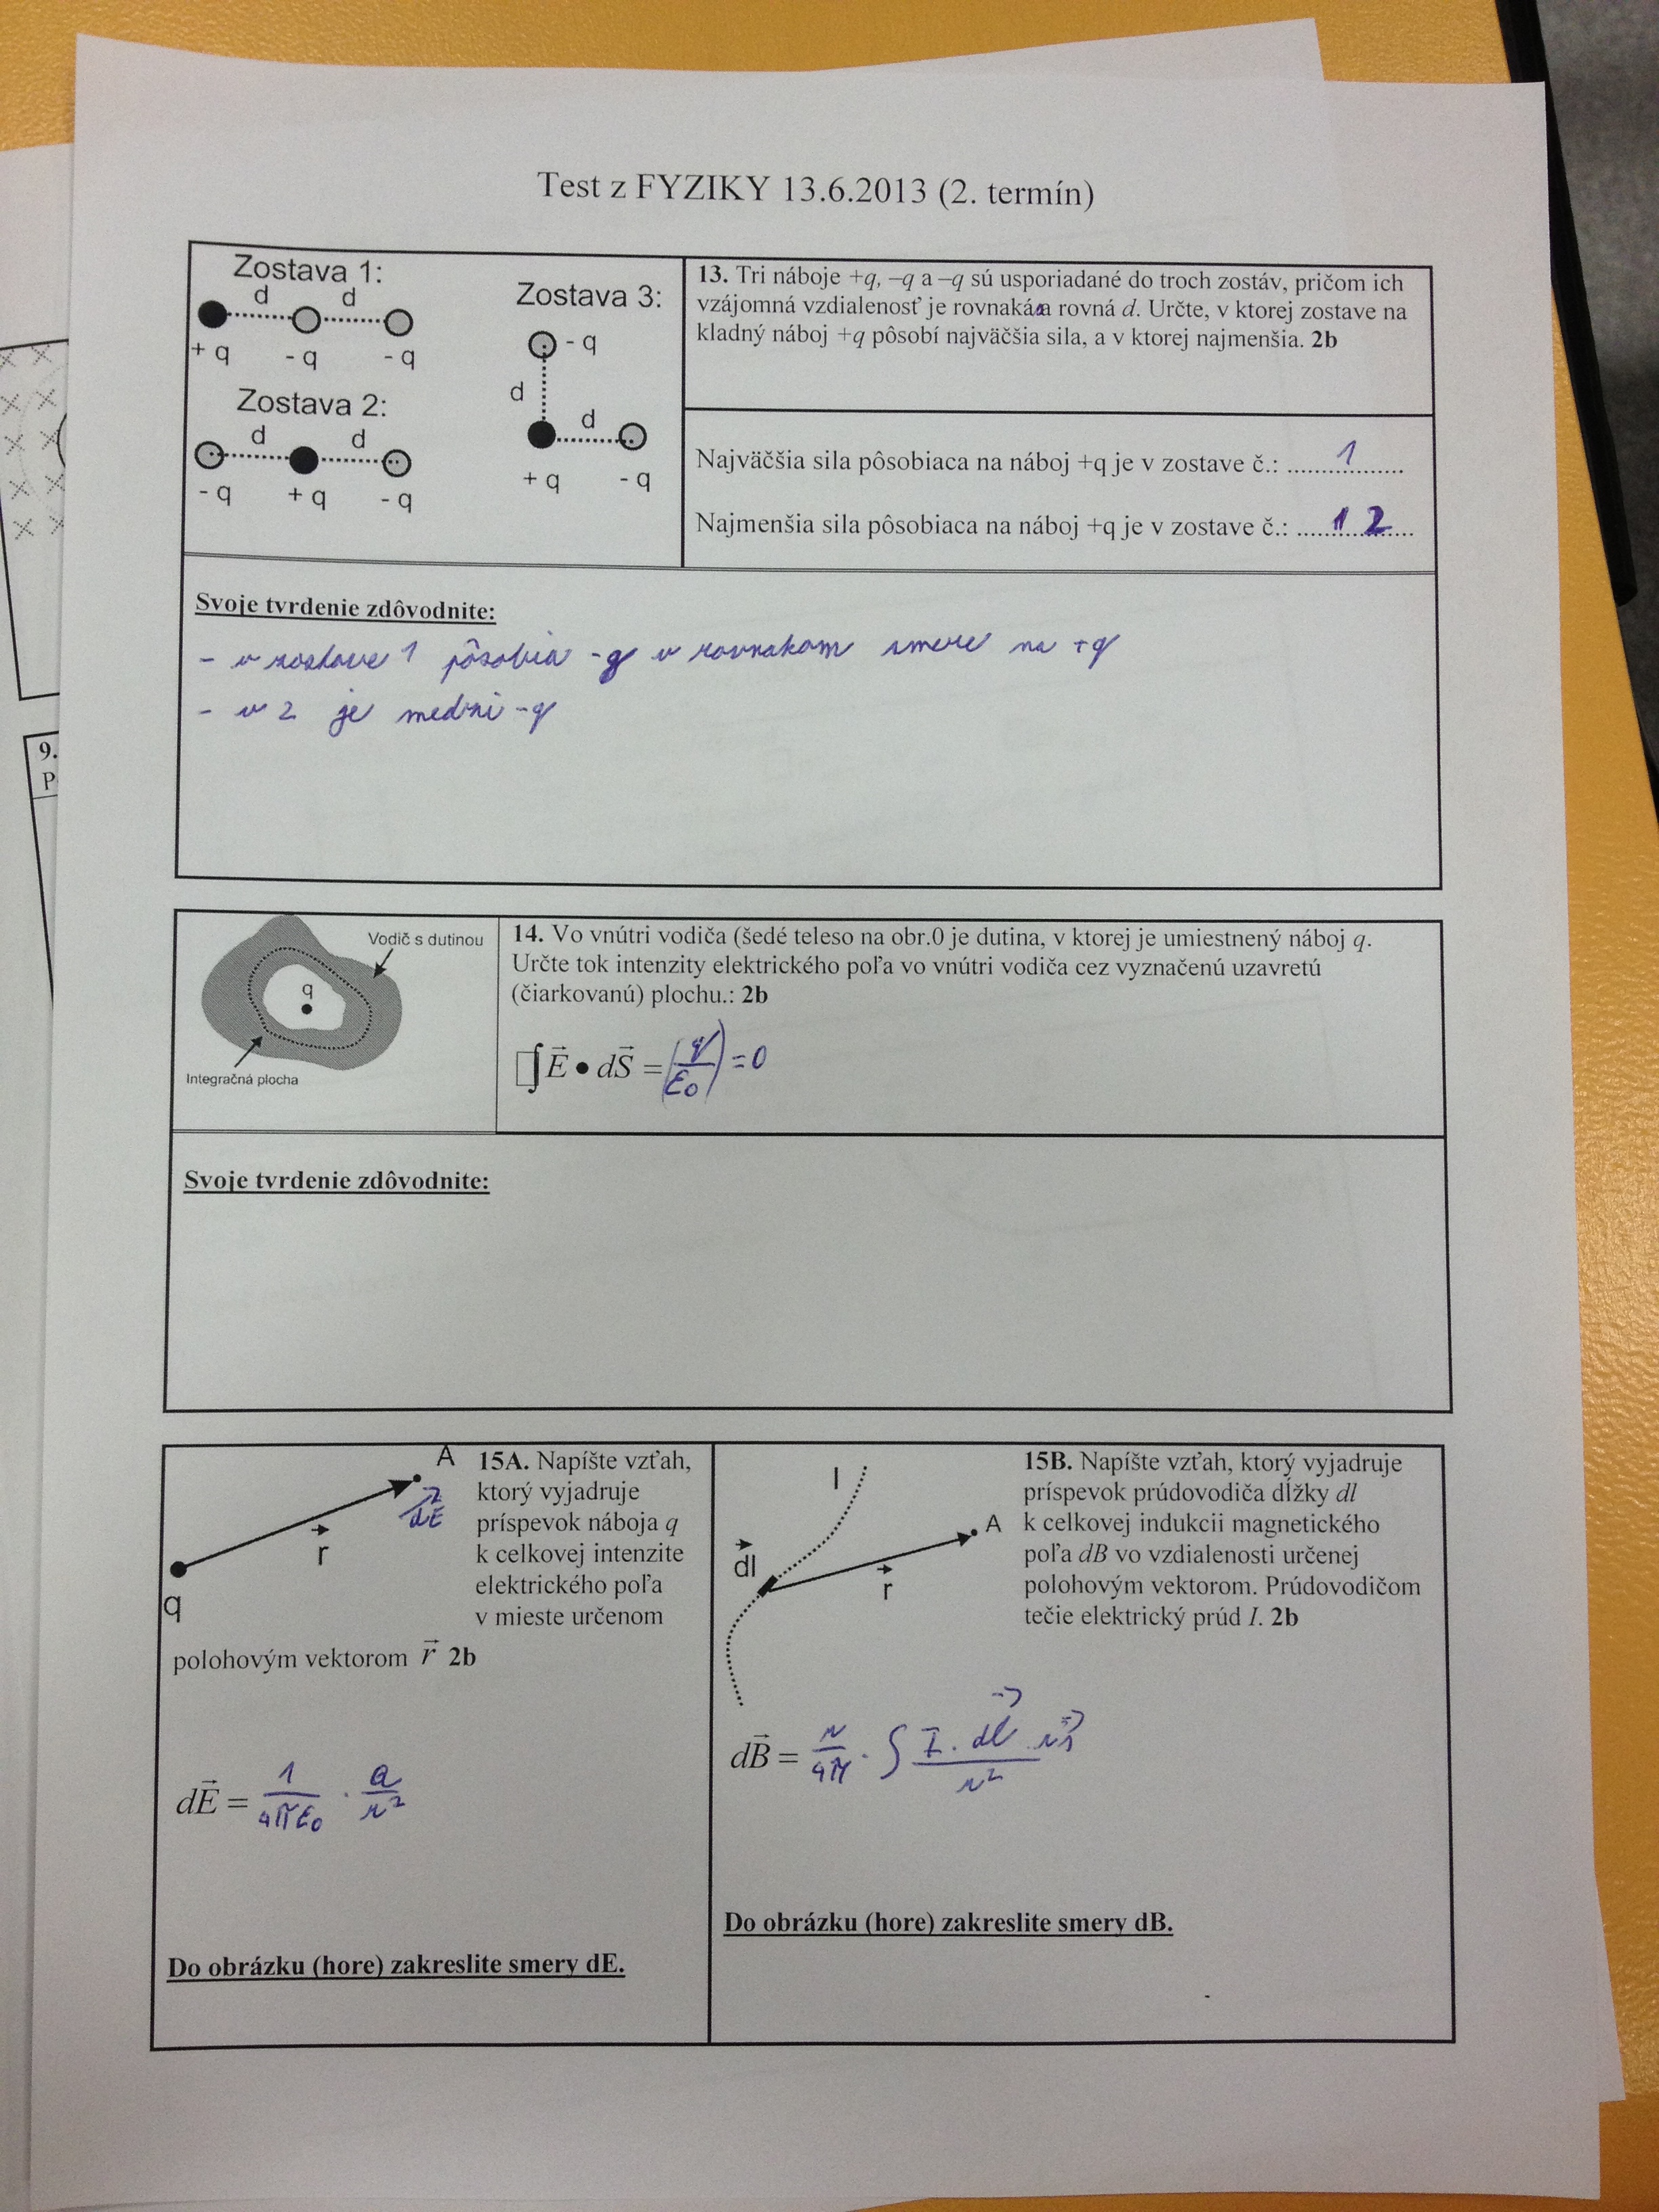 Test z FYZIKY 13.6.2013 (2. termín)
Zostava 1:
d d
+ q - q - q
Zostava 2:
d d
- q + q - q
Zostava 3:
- q
d
d
+ q - q
13. Tri náboje +q, –q a –q sú usporiadané do troch zostáv, pričom ich
vzájomná vzdialenosť je rovnaká a rovná d. Určte, v ktorej zostave na
kladný náboj +q pôsobí najväčšia sila, a v ktorej najmenšia. 2b
Najväčšia sila pôsobiaca na náboj +q je v zostave č.: ........1........
Najmenšia sila pôsobiaca na náboj +q je v zostave č.: .....1 2....
Svoje tvrdenie zdôvodnite:
- v zostave 1 pôsobia -q v rovnakom smere na +q
- v 2 je medzi -q
Vodič s dutinou
q
Integračná plocha
14. Vo vnútri vodiča (šedé teleso na obr.0 je dutina, v ktorej je umiestnený náboj q.
Určte tok intenzity elektrického poľa vo vnútri vodiča cez vyznačenú uzavretú
(čiarkovanú) plochu.: 2b
∮E⃗ • dS⃗ = (q/ε₀) = 0
Svoje tvrdenie zdôvodnite:
A
dE⃗
r⃗
q
15A. Napíšte vzťah,
ktorý vyjadruje
príspevok náboja q
k celkovej intenzite
elektrického poľa
v mieste určenom
polohovým vektorom r⃗ 2b
dE⃗ = 1/4πε₀ · Q/r²
Do obrázku (hore) zakreslite smery dE.
I
A
dl⃗
r⃗
15B. Napíšte vzťah, ktorý vyjadruje
príspevok prúdovodiča dĺžky dl
k celkovej indukcii magnetického
poľa dB vo vzdialenosti určenej
polohovým vektorom. Prúdovodičom
tečie elektrický prúd I. 2b
dB⃗ = μ/4π · ∫ I · dl⃗ / r²
Do obrázku (hore) zakreslite smery dB.
9.
P